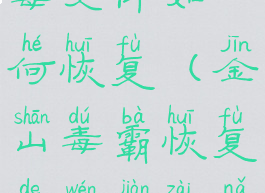 hé huī fù jīn
何恢复（金
shān dú bà huī fù
山毒霸恢复
de wén jiàn zài nǎ